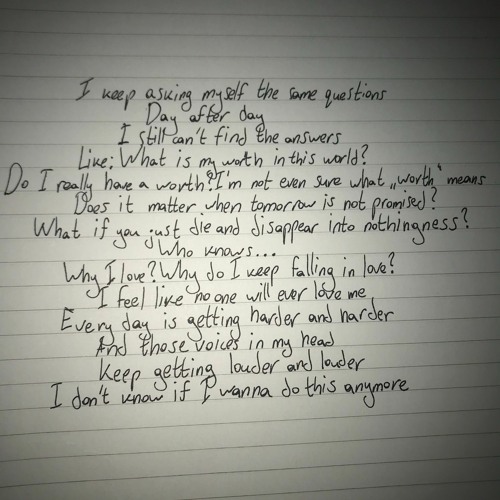 I keep asking myself the same questions
Day after day
I still can't find the answers
Like: What is my worth in this world?
Do I really have a worth? I'm not even sure what „worth“ means
Does it matter when tomorrow is not promised?
What if you just die and disappear into nothingness?
Who knows...
Why I love? Why do I keep falling in love?
I feel like no one will ever love me
Every day is getting harder and harder
And those voices in my head
Keep getting louder and louder
I don't know if I wanna do this anymore